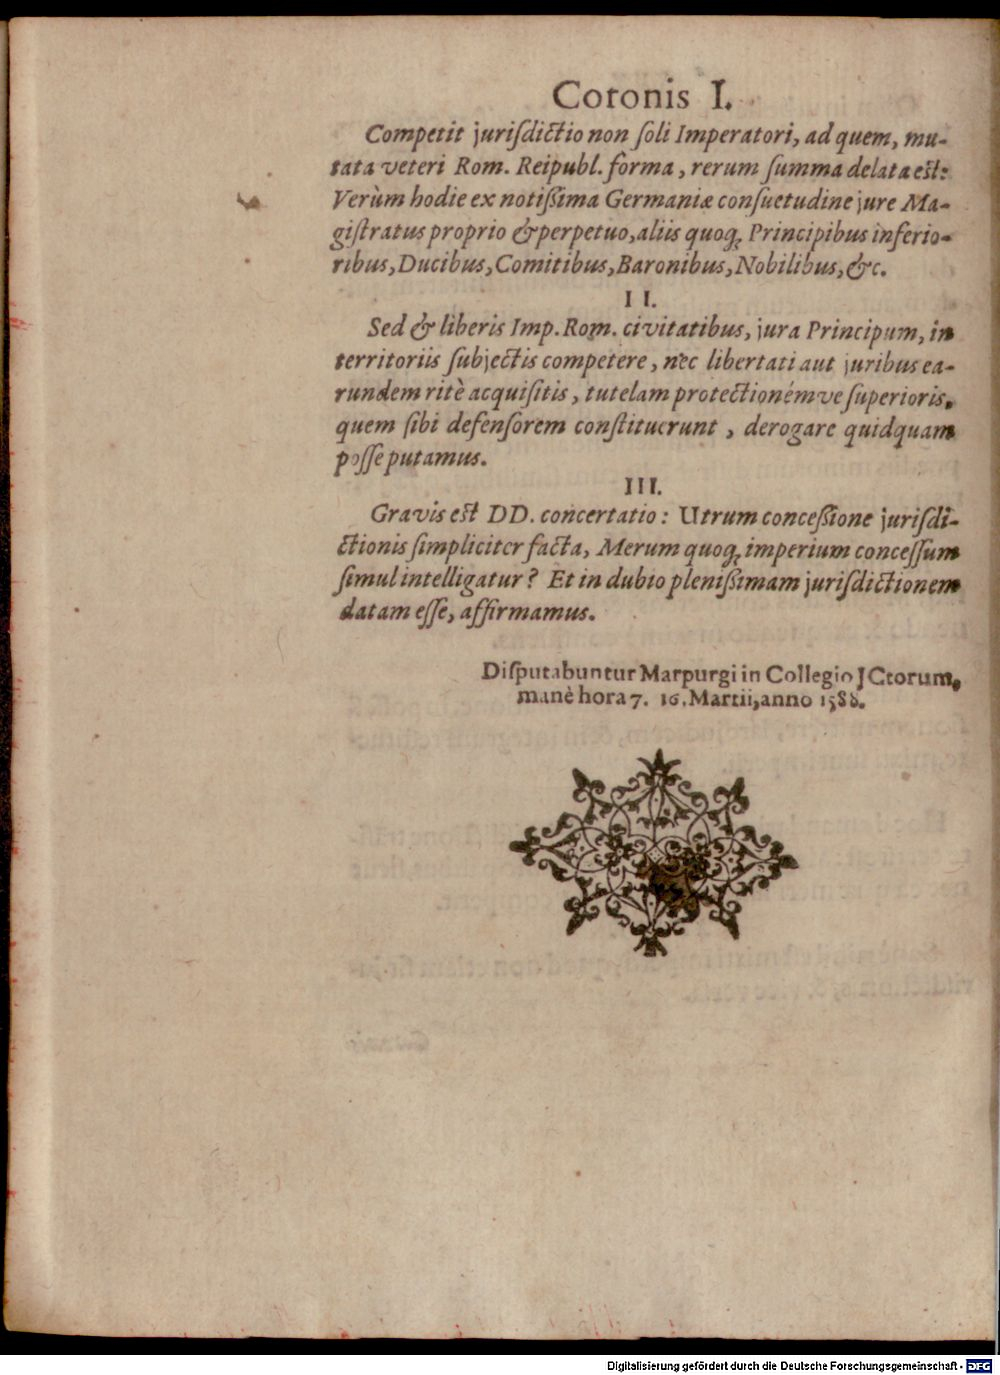 Coronis I.
Competit jurisdictio non soli Imperatori, ad quem, mu-
tata veteri Rom. Reipubl. forma, rerum summa delata est:
Verùm hodie ex notißima Germaniæ consuetudine jure Ma-
gistratus proprio & perpetuo, aliis quoq; Principibus inferio-
ribus, Ducibus, Comitibus, Baronibus, Nobilibus, &c.
II.
Sed & liberis Imp. Rom. civitatibus, jura Principum, in
territoriis subjectis competere, nec libertati aut juribus ea-
rundem ritè acquisitis, tutelam protectionémve superioris,
quem sibi defensorem constituerunt, derogare quidquam
posse putamus.
III.
Gravis est DD. concertatio: Utrum conceßione jurisdi-
ctionis simpliciter facta, Merum quoq; imperium concessum
simul intelligatur? Et in dubio plenißimam jurisdictionem
datam esse, affirmamus.
Disputabuntur Marpurgi in Collegio JCtorum,
manè hora 7. 16. Martii, anno 1588.
Digitalisierung gefördert durch die Deutsche Forschungsgemeinschaft - DFG